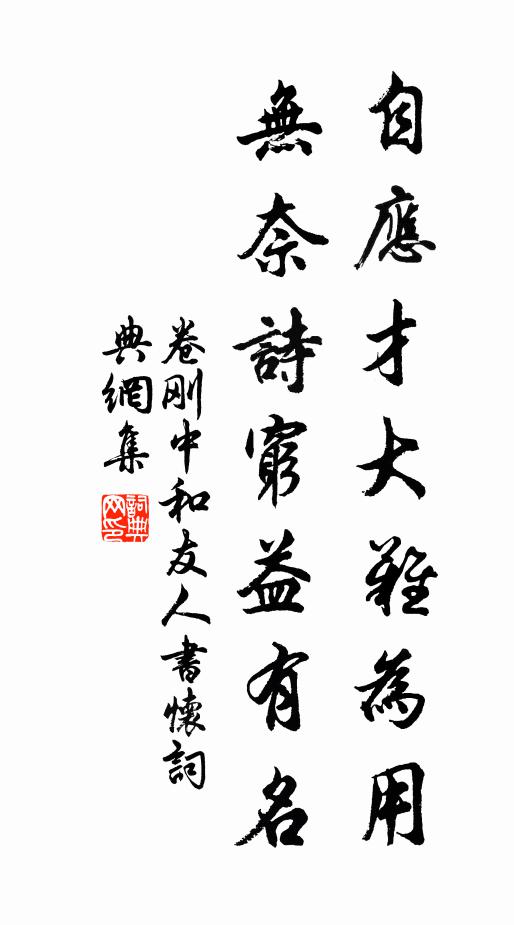 自應才大難為用
無奈詩窮益有名
卷剛中和友人書懷詞
典網集
詞典网印